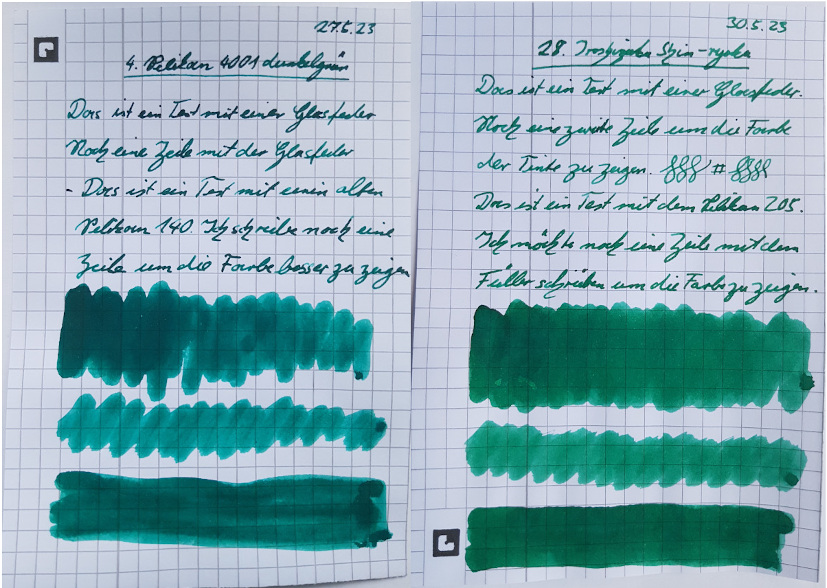 27.5.23
4. Pelikan 4001 dunkelgrün
Das ist ein Test mit einer Glasfeder
Noch eine Zeile mit der Glasfeder
- Das ist ein Test mit einen alten
Pelikan 140 Ich schreibe noch eine
Zeile um die Farbe besser zu zeigen
30.5.23
28. Iroshizuku Shin-ryoku
Das ist ein Test mit einer Glasfeder.
Noch eine zweite Zeile um die Farbe
der Tinte zu zeigen. #
Das ist ein Test mit dem Pelikan 205.
Ich möchte noch eine Zeile mit dem
Füller schreiben um die Farbe zu zeigen.